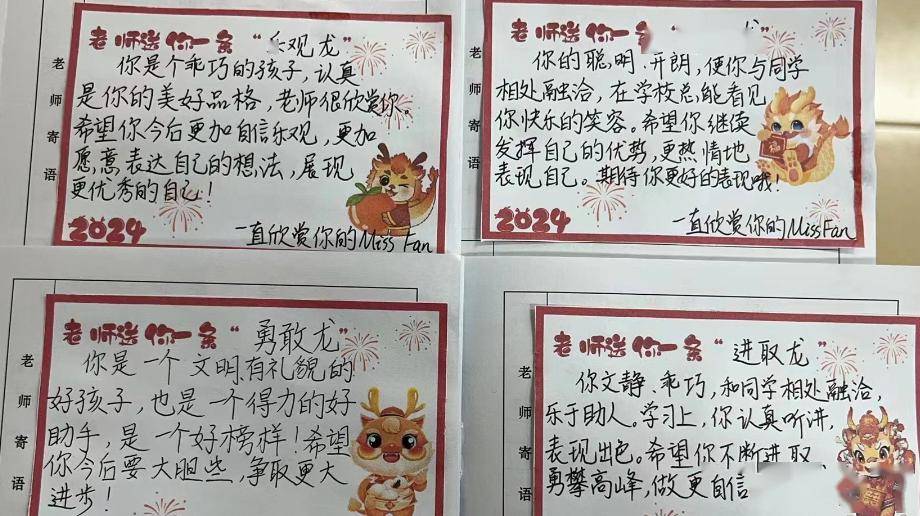 老师寄语
老师送你一条“乐观龙”
你是个乖巧的孩子，认真
是你的美好品格，老师很欣赏你.
希望你今后更加自信乐观，更加
愿意表达自己的想法，展现
更优秀的自己！
2024
一直欣赏你的Miss Fan
老师寄语
老师送你一条“
你的聪明、开朗，使你与同学
相处融洽，在学校总能看见
你快乐的笑容。希望你继续
发挥自己的优势，更热情地
表现自己。期待你更好的表现哦！
福
2024
一直欣赏你的Miss Fan
老师寄语
老师送你一条“勇敢龙”
你是一个文明、有礼貌的
好孩子，也是一个得力的好
助手，是一个好榜样！希望
你今后要大胆些，争取更大
进步！
老师寄语
老师送你一条“进取龙”
你文静、乖巧，和同学相处融洽，
乐于助人。学习上，你认真听讲，
表现出色。希望你不断进取、
勇攀高峰，做更自信